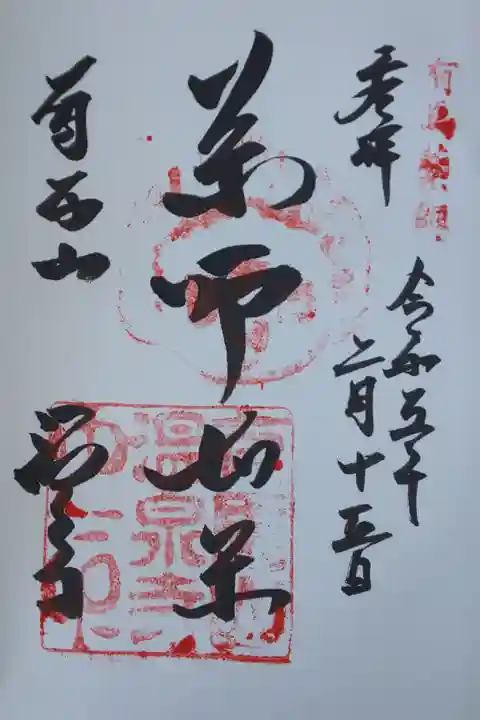 有馬薬師
奉拝
令和五年
二月十五日
薬師如来
有馬山
温泉寺